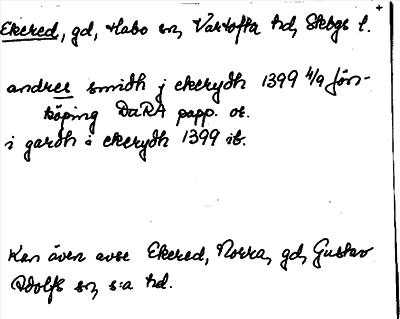 Ekered, gd, Habo sn, Vartofta hd, Skbgs l.
+
andres smidh j ekerydh 1399 4/9 Jön-
köping DaRA papp. or.
i gardh i ekerydh 1399 ib.
Kan även avse Ekered, Norra, gd, Gustav
Adolfs sn, s:a hd.